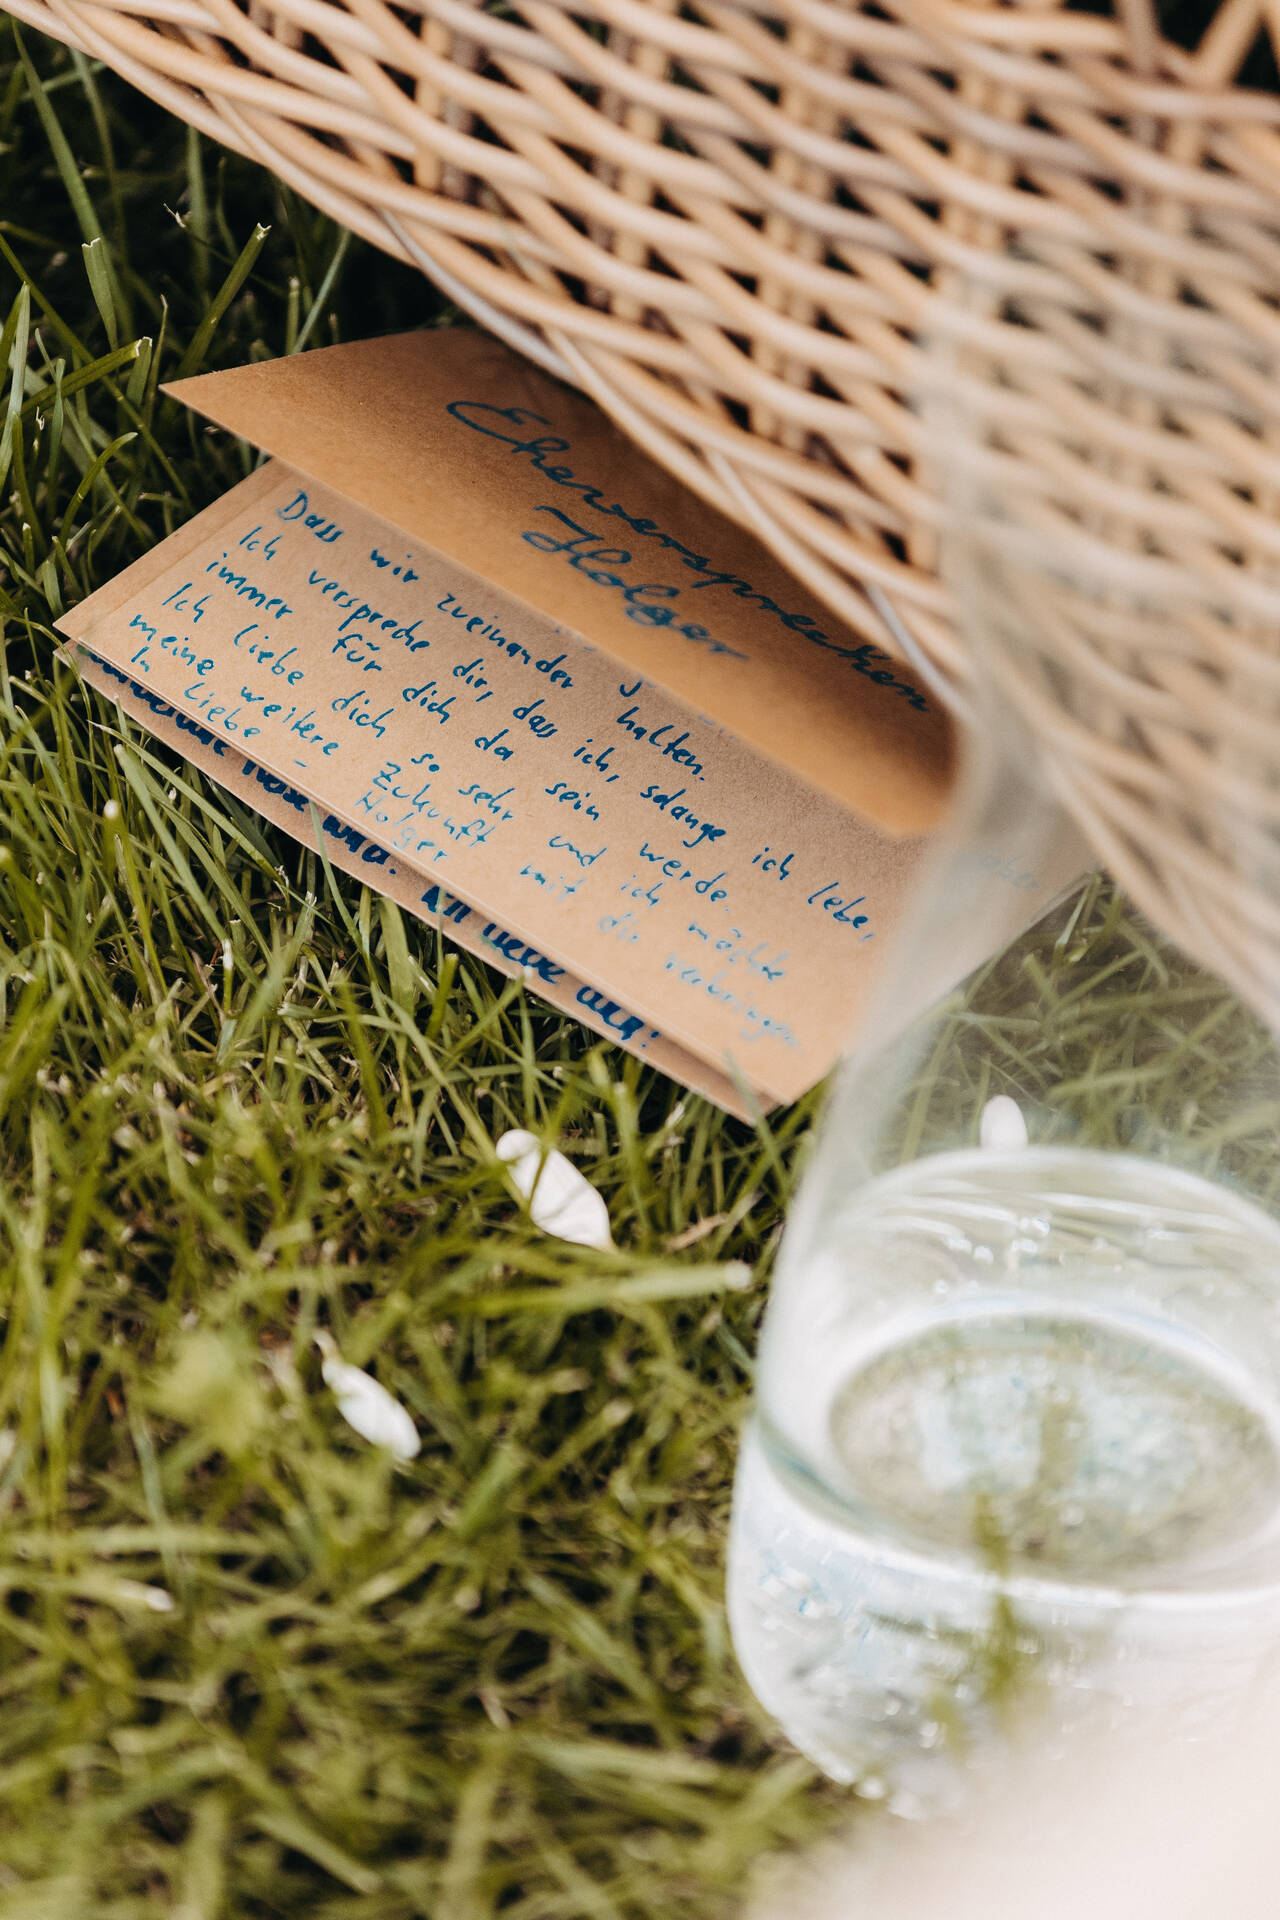 Eheversprechen
Holger
Dass wir zueinander halten.
Ich verspreche dir, dass ich, solange ich lebe,
immer für dich da sein werde.
Ich liebe dich so sehr und ich möchte
meine weitere Zukunft mit dir verbringen
In Liebe - Holger
wird. Ich liebe dich!